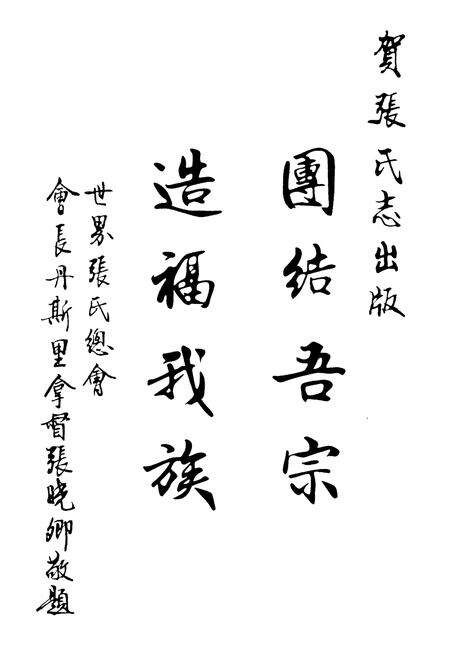 賀張氏志出版
團結吾宗
造福我族
世界張氏總會
會長丹斯里拿督張曉卿敬題